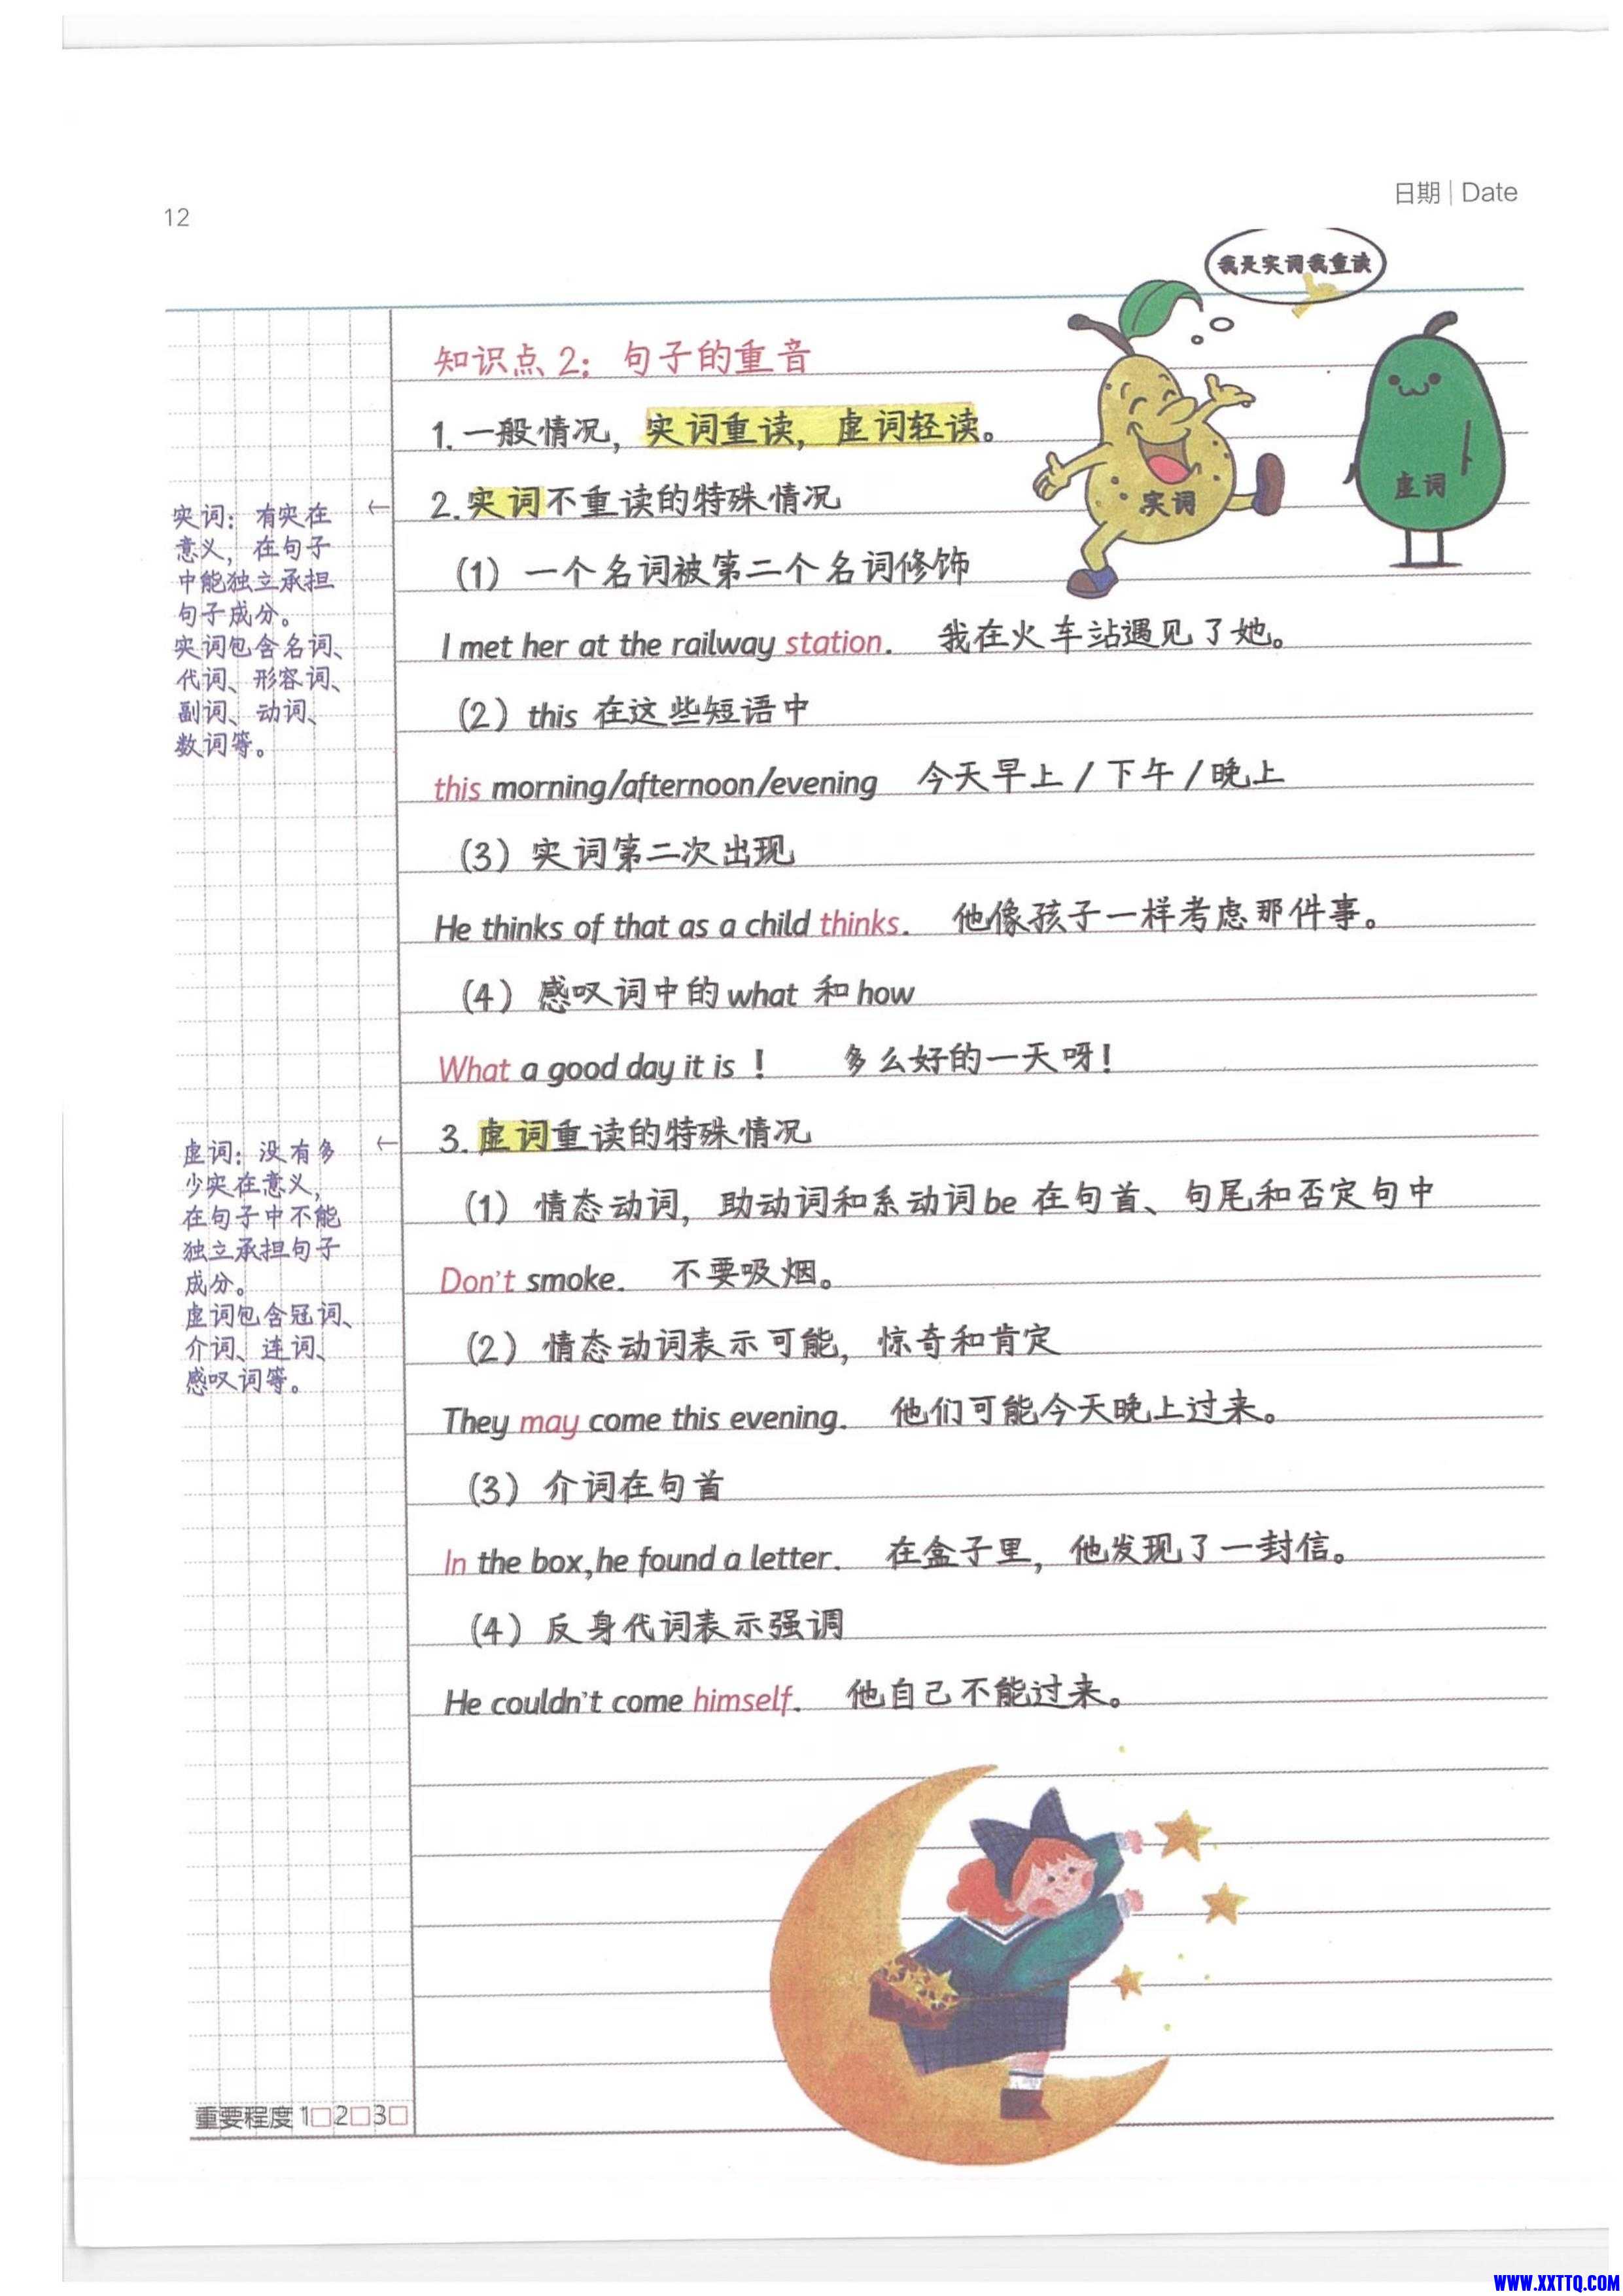 日期 | Date
12
我是实词我重读
知识点 2：句子的重音
1. 一般情况，实词重读，虚词轻读。
实词
虚词
2. 实词不重读的特殊情况
←
实词：有实在
意义，在句子
中能独立承担
句子成分。
实词包含名词、
代词、形容词、
副词、动词、
数词等。
（1）一个名词被第二个名词修饰
I met her at the railway station. 我在火车站遇见了她。
（2）this 在这些短语中
this morning/afternoon/evening 今天早上 / 下午 / 晚上
（3）实词第二次出现
He thinks of that as a child thinks. 他像孩子一样考虑那件事。
（4）感叹词中的 what 和 how
What a good day it is！ 多么好的一天呀！
3. 虚词重读的特殊情况
←
虚词：没有多
少实在意义，
在句子中不能
独立承担句子
成分。
虚词包含冠词、
介词、连词、
感叹词等。
（1）情态动词，助动词和系动词 be 在句首、句尾和否定句中
Don't smoke. 不要吸烟。
（2）情态动词表示可能，惊奇和肯定
They may come this evening. 他们可能今天晚上过来。
（3）介词在句首
In the box,he found a letter. 在盒子里，他发现了一封信。
（4）反身代词表示强调
He couldn't come himself. 他自己不能过来。
重要程度 1□2□3□
WWW.XXTTQ.COM